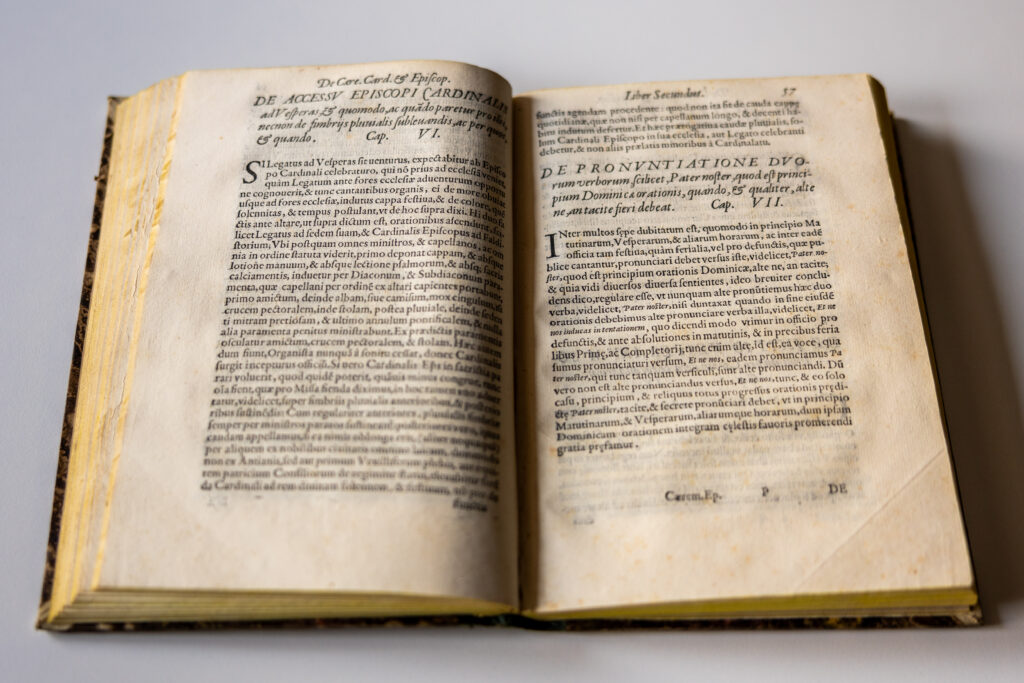 De Cere. Card. & Episcop.
DE ACCESSV EPISCOPI CARDINALIS
ad Vesperas, & quomodo, ac quādo paretur pro illo,
necnon de fimbrijs pluuialis subleuandis, ac per quos,
& quando. Cap. VI.
SI Legatus ad Vesperas sit venturus, expectabitur ab Episco
po Cardinali celebraturo, qui nō prius ad ecclesiā veniet,
quàm Legatum ante fores ecclesiæ aduenturum opportu
ne cognouerit, & tunc cantantibus organis, ei de more obuiat
usque ad fores ecclesiæ, indutus cappa festiua, & de colore, quē
solennitas, & tempus postulant, vt de hoc supra dixi. Hi duo
ctis ante altare, ut supra dictum est, orationibus ascendunt,
licet Legatus ad sedem suam, & Cardinalis Episcopus ad Faldi
storium, Vbi postquam omnes ministros, & capellanos, ac om
nia in ordine statuta viderit, primo deponat cappam, & absque
lotione manuum, & absque lectione psalmorum, & absq. sanda
calciamentis, induetur per Diaconum, & Subdiaconum para
menta, quæ capellani per ordinē ex altari capientes portabunt,
primo amictum, deinde albam, siue camisum, mox cingulum,
crucem pectoralem, inde stolam, postea pluuiale, deinde
ti mitram pretiosam, & ultimo annulum pontificalem, & 
alia paramenta penitus ministrabunt. Ex prædictis paramentis
osculatur amictum, crucem pectoralem, & stolam. Hæc
dum fiunt, Organista nunquā à sonitu cessat, donec Cardinalis
surgit incepturus officiū. Si vero Cardinalis Eps in sacristia pa
rari voluerit, quod quidē poterit, quāuis minus congrue,
ola fient, quæ pro Missa fienda diximus, in hoc tamen
tatur, videlicet, super fimbrijs pluuialis anterioribus, & posterio
ribus sustinēdis: Cum regulariter anteriores, pluuialis
semper per ministros paratos sustineantur, posteriores vero, quas
caudam appellamus,
per aliquem ex nobilibus
non ex Antianis, sed aut primum
rem patricium Consiliorum
da Cardinali ad rem diuinam
Liber Secundus. 57
functis agendam procedente: quod non ita fit de cauda cappę
quotidianæ, quæ non nisi per capellanum longo, & decenti ha-
bitu indutum defertur. Et hæc prærogatiua caudæ pluuialis, so-
lum Cardinali Episcopo in sua ecclesia, aut Legato celebranti
debetur, & non alijs prælatis minoribus à Cardinalatu.
DE PRONVNTIATIONE DVO-
rum verborum scilicet, Pater noster, quod est princi-
pium Dominicæ orationis, quando, & qualiter, alte
ne, an tacite fieri debeat. Cap. VII.
INter multos sępe dubitatum est, quomodo in principio Ma
tutinarum, Vesperarum, & aliarum horarum, ac inter eadē
officia tam festiua, quàm ferialia, vel pro defunctis, quæ pu-
blice cantantur, pronunciari debet versus iste, videlicet, Pater no-
ster, quod est principium orationis Dominicæ, alte ne, an tacite,
& quia vidi diuersos diuersa sentientes, ideo breuiter conclu-
dens dico, regulare esse, vt nunquam alte pronūtiemus hæc duo
verba, videlicet, Pater noster, nisi duntaxat quando in fine eiusdē
orationis debebimus alte pronunciare verba illa, videlicet, Et ne
nos inducas in tentationem, quo dicendi modo vtimur in officio pro
defunctis, & ante absolutiones in matutinis, & in precibus feria
libus Primę, ac Completorij, tunc enim alte, id est, ea voce, qua
sumus pronunciaturi versum, Et ne nos, eadem pronunciamus Pa
ter noster, qui tunc tanquam versiculi, sunt alte pronunciandi. Dū
vero non est alte pronunciandus versus, Et ne nos, tunc, & eo solo
casu, principium, & reliquus totus progressus orationis prędi-
ctę Pater noster, tacite, & secrete pronūciari debet, vt in principio
Matutinarum, & Vesperarum, aliarumque horarum, dum ipsam
Dominicam orationem integram cęlestis fauoris promerendi
gratia pręfamur.
Cærem. Ep. P DE